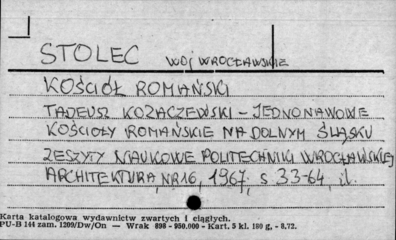 STOLEC WOJ WROCŁAWSKIE
KOŚCIÓŁ ROMAŃSKI
TADEUSZ KOZACZEWSKI - JEDNONAWOWE
KOŚCIOŁY ROMAŃSKIE NA DOLNYM ŚLĄSKU
ZESZYTY NAUKOWE POLITECHNIKI WROCŁAWSKIEJ
ARCHITEKTURA, NR 16, 1967, s 33-64, il.
Karta katalogowa wydawnictw zwartych i ciągłych.
PU-B 144 zam. 1209/Dw/On — Wrak 898 - 950.000 - Kart. 5 kl. 180 g, - 8,72.